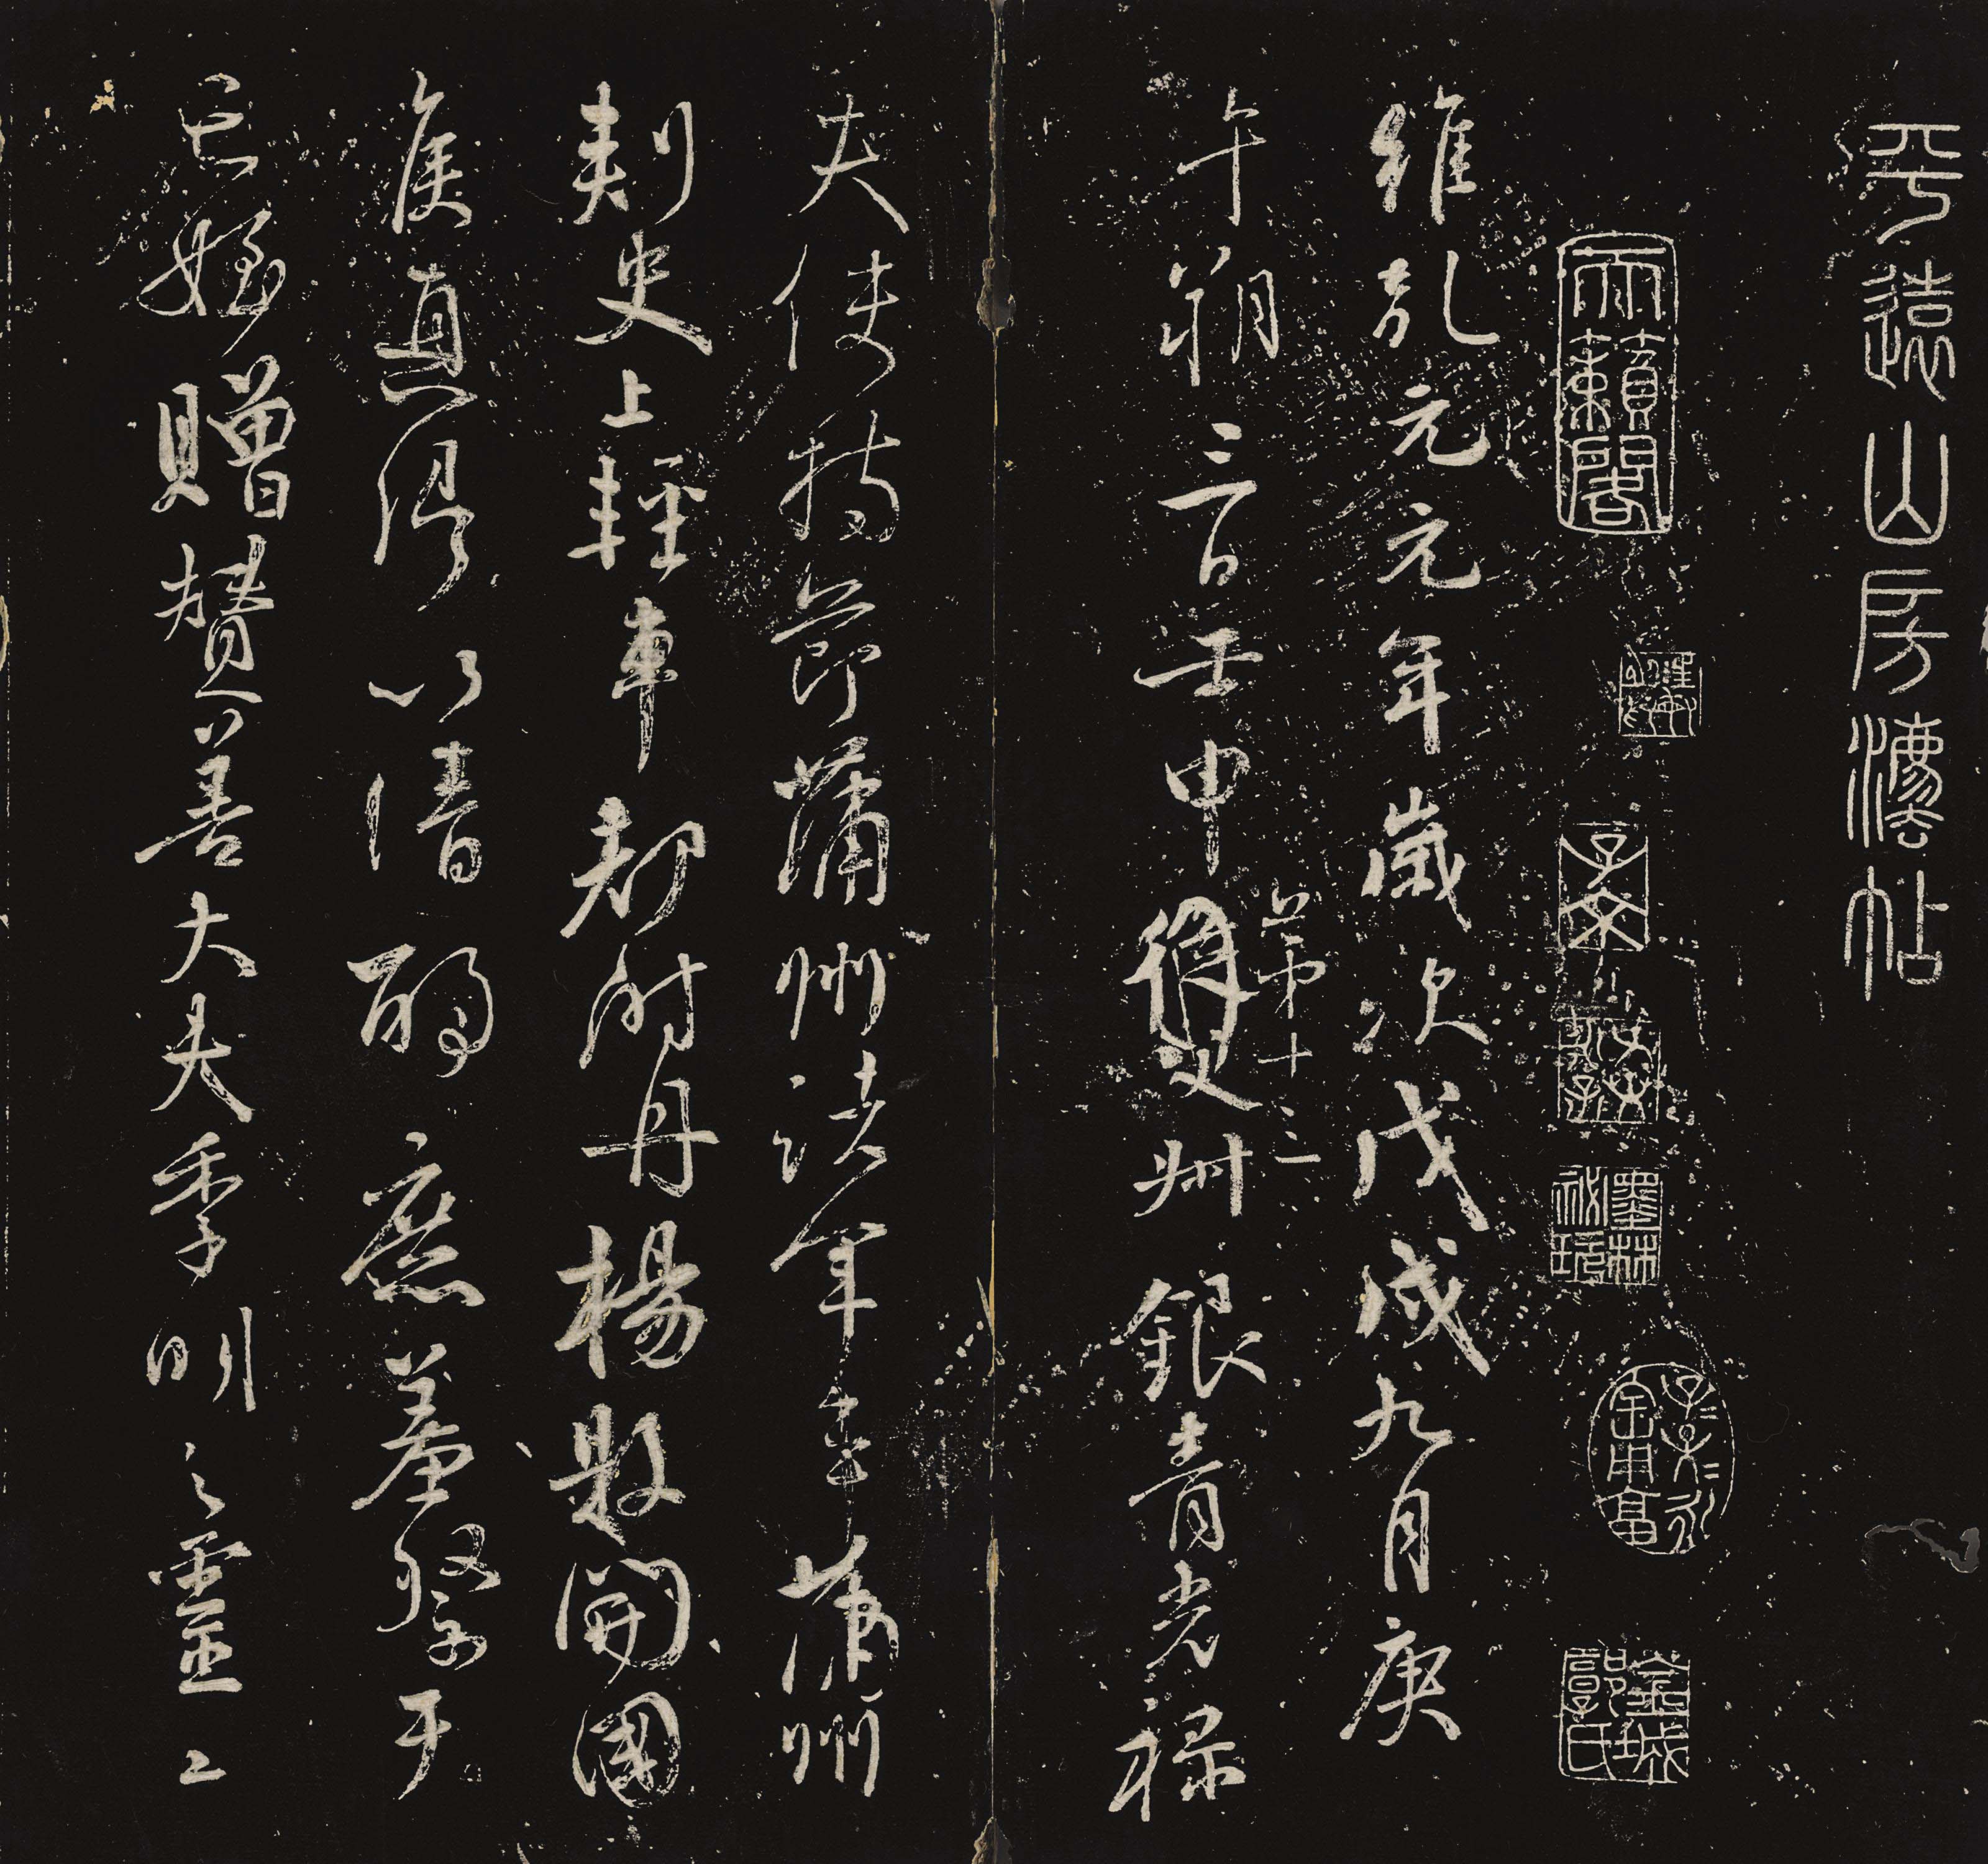 平遠山房灋帖
天籟閣
子京
墨林祕玩
金城郭氏
維乾元元年歲次戊戌九月庚
午朔三日壬申第十三叔銀青光祿
夫使持節蒲州諸軍事蒲州
刺史上輕車都尉丹楊縣開國
侯真卿以清酌庶羞祭于
亡姪贈贊善大夫季明之靈曰